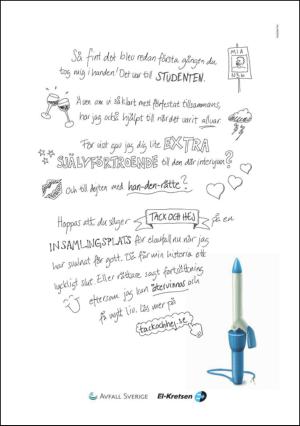 Så fint det blev redan första gången du
tog mig i handen! Det var till STUDENTEN.
MIA
N3A
Även om vi såklart mest förfestat tillsammans,
har jag också hjälpt till när det varit allvar.
För visst gav jag dig lite EXTRA
SJÄLVFÖRTROENDE till den där intervjun?
Och till dejten med han-den-rätte?
Hoppas att du säger TACK OCH HEJ på en
INSAMLINGSPLATS för elavfall nu när jag
har svalnat för gott. Då får min historia ett
lyckligt slut. Eller rättare sagt fortsättning
eftersom jag kan återvinnas och
få nytt liv. Läs mer på
tackochhej.se
AVFALL SVERIGE El-Kretsen